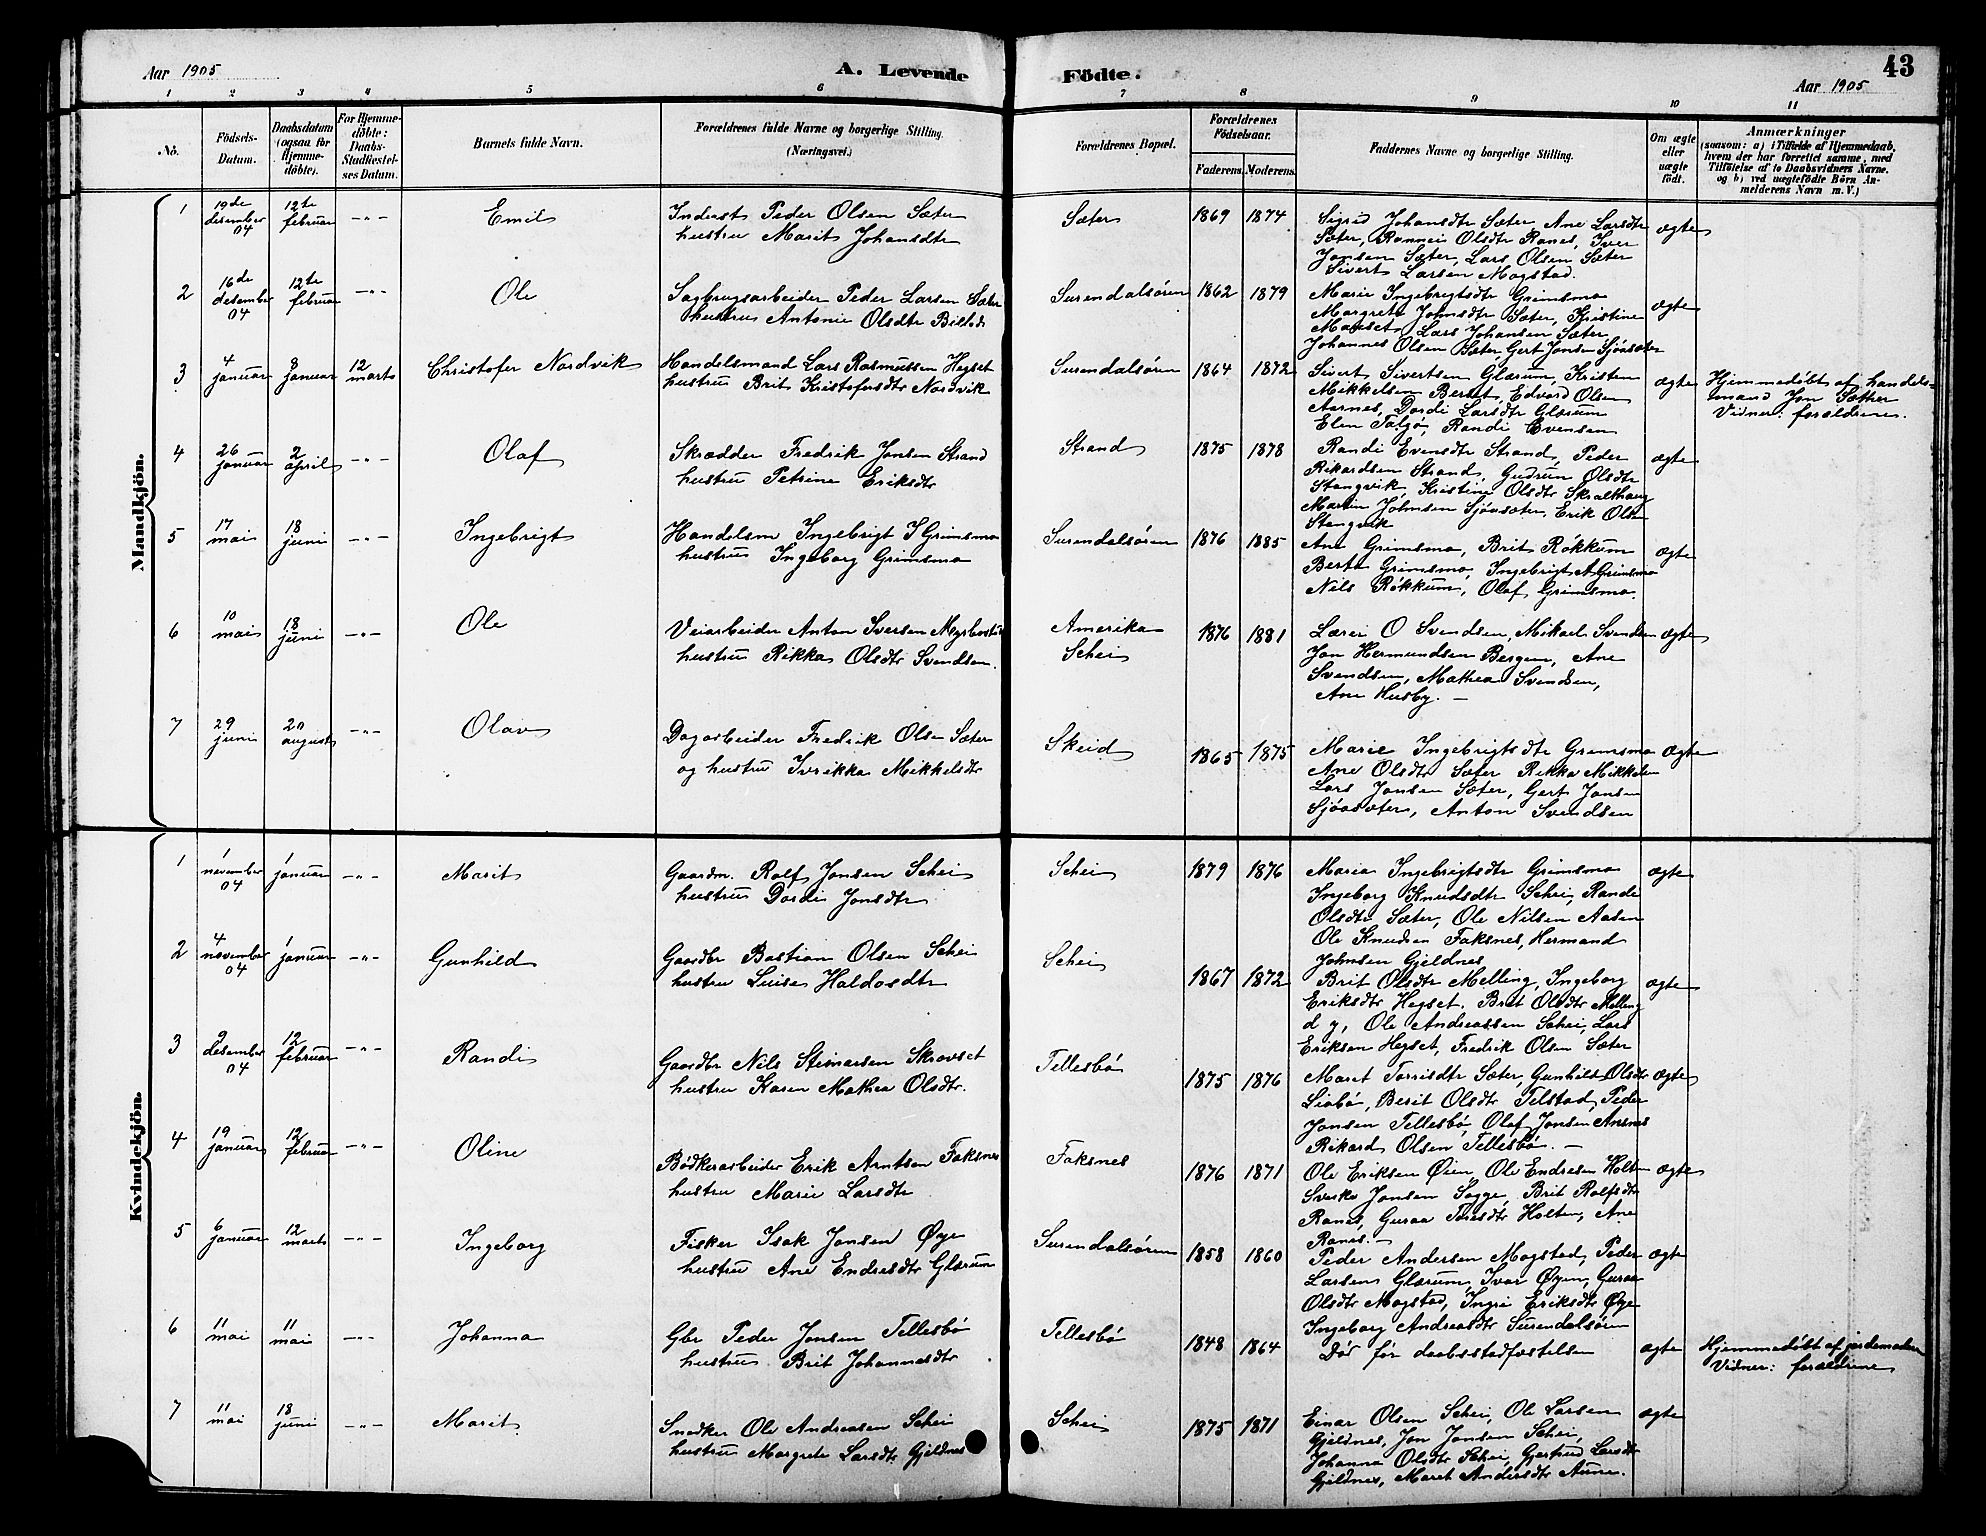 43
Aar 1905
A. Levende Födte.
Aar 1905
1 2 3 4 5 6 7 8 9 10 11
No.
Födsels-
Datum.
Daabsdatum
(ogsaa for
Hjemme-
döbte).
For Hjemme-
döbte:
Daabs-
Stadfæstel-
ses Datum.
Barnets fulde Navn.
Forældrenes fulde Navne og borgerlige Stilling.
(Næringsvei.)
Forældrenes Bopæl.
Forældrenes
Födselsaar.
Faderens. Moderens.
Faddernes Navne og borgerlige Stilling.
Om ægte
eller
uægte
födt.
Anmærkninger
(saasom: a) i Tilfælde af Hjemmedaab,
hvem der har forrettet samme, med
Tilföielse af to Daabsvidners Navne.
og b) ved uægtefödte Börn An-
melderens Navn m. V.)
Mandkjön.
1 19de desember 04 12te februar -"- Emil
Inderst Peder Olsen Sæter
hustru Marit Johansdtr
Sæter 1869 1874
Sigrid Johansdtr Sæter Ane Larsdtr
Sæter, Rannei Olsdtr Ranes, Iver
Jonsen Sæter, Lars Olsen Sæter
Sivert Larsen Mogstad.
ægte
2 16de desember 04 12te februar -"- Ole
Sagbrugsarbeider Peder Larsen Sæter
hustru Antonie Olsdtr
Surendalsøren 1862 1879
Marie Ingebrigtsdtr Grimsmo
Margrete Johnsdtr Sæter, Kristine
Mauset, Lars Johansen Sæter,
Johannes Olsen Sæter, Gert Jonsen Sjøasæter
ægte
3 4 januar 8 januar 12 marts Christofer Nordvik
Handelsmand Lars Rasmussen Hegset
hustru Brit Kristofersdtr Nordvik
Surendalsøren 1864 1872
Sivert Sivertsen Glærum, Kristen
Mikkelsen Berset, Edvard Olsen
Aarnes, Dordi Larsdtr Glærum
Elen Talgø, Randi Evensen
ægte
Hjemmedøbt af handels-
mand Jon Sæther
Vidner: forældrene.
4 26 januar 2 april -"- Olaf
Skrædder Fredrik Jonsen Strand
hustru Petrine Eriksdtr
Strand 1875 1878
Randi Evensdtr Strand, Peder
Rikardsen Strand, Gudrun Olsdtr
Stangvik, Kristine Olsdtr Skralthaug
Martin Johnsen Sjøasæter, Erik Olsen
Stangvik
ægte
5 17 mai 18 juni -"- Ingebrigt
Handelsm Ingebrigt I Grimsmo
hustru Ingeborg Grimsmo
Surendalsøren 1876 1885
Ane Grimsmo, Brit Røkkum
Berte Grimsmo, Ingebrigt A Grimsmo
Nils Røkkum, Olaf Grimsmo.
ægte
6 10 mai 18 juni -"- Ole
Veiarbeider Anton Iversen
hustru Rikka Olsdtr Svendsen.
Amerika
Schei
1876 1881
Lærer O Svendsen, Mikael Svendsen
Jon Hermundsen Bergem, Ane
Svendsen, Mathea Svendsen,
Ane Husby. -
ægte
7 29 juni 20 august -"- Olav
Dagarbeider Fredrik Olsen Sæter
og hustru Ivrikka Mikkelsdtr
Skeid 1865 1875
Marie Ingebrigtsdtr Grimsmo
Ane Olsdtr Sæter Rikka Mikkelsen
Lars Jonsen Sæter, Gert Jonsen
Sjøasæter, Anton Svendsen
ægte
Kvindekjön.
1 1 november 04 1 januar -"- Marit
Gaardm. Rolf Jonsen Schei
hustru Dordi Jonsdtr
Schei 1879 1876
Maria Ingebrigtsdtr Grimsmo
Ingeborg Knudsdtr Schei, Randi
Olsdtr Sæter, Ole Nilsen Aasen
Ole Knudsen Faksnes, Hermand
Johnsen Gjeldnes
ægte
2 4 november 04 1 januar -"- Gunhild
Gaardbr Bastian Olsen Schei
hustru Luise Haldosdtr
Schei 1867 1872
Brit Olsdtr Melling, Ingeborg
Eriksdtr Hegset. Brit Olsdtr Melling
d y, Ole Andreassen Schei, Lars
Eriksen Hegset, Fredrik Olsen Sæter
ægte
3 9 desember 04 12 februar -"- Randi
Gaardbr Nils Steinarsen Skrovset
hustru Karen Mathea Olsdtr.
Tellesbø 1875 1876
Maret Torrisdtr Sæter, Gunhild Olsdtr
Liabø, Berit Olsdtr Telstad, Peder
Jonsen Tellesbø, Olaf Jonsen Aasnes
Rikard Olsen Tellesbø. -
ægte
4 19 januar 12 februar -"- Oline
Bødkerarbeider Erik Arntsen Faksnes
hustru Marie Larsdtr
Faksnes 1876 1871
Ole Eriksen Øien, Ole Endresen Holten
Sverke Jonsen Sogge, Brit Rolfsdtr
Ranes, Guraa Toresdtr Holten, Ane
Ranes. -
ægte
5 6 januar 12 marts -"- Ingeborg
Fisker Isak Jonsen Øye
hustru Ane Endresdtr Glærum
Surendalsøren 1858 1860
Peder Andersen Mogstad, Peder
Larsen Glærum, Ivar Øyen, Guraa
Olsdtr Mogstad, Ingri Eriksdtr Øye
Ingeborg Andreasdtr Surendalsøren
ægte
6 11 mai 11 mai -"- Johanna
Gbr Peder Jonsen Tellesbø
hustru Brit Johannesdtr
Tellesbø 1848 1864
Død før daabsstadfæstelsen
ægte
Hjemmedøbt af jordemoderen
Vidner: forældrene
7 11 mai 18 juni -"- Marit
Snedker Ole Andreasen Schei
hustru Margrete Larsdtr Gjeldnes
Schei 1875 1871
Einar Olsen Schei, Ole Larsen
Gjeldnes, Jon Jonsen Schei,
Johanna Olsdtr Schei, Gjertrud Larsdtr
Gjeldnes, Maret Andersdtr Aune.
ægte